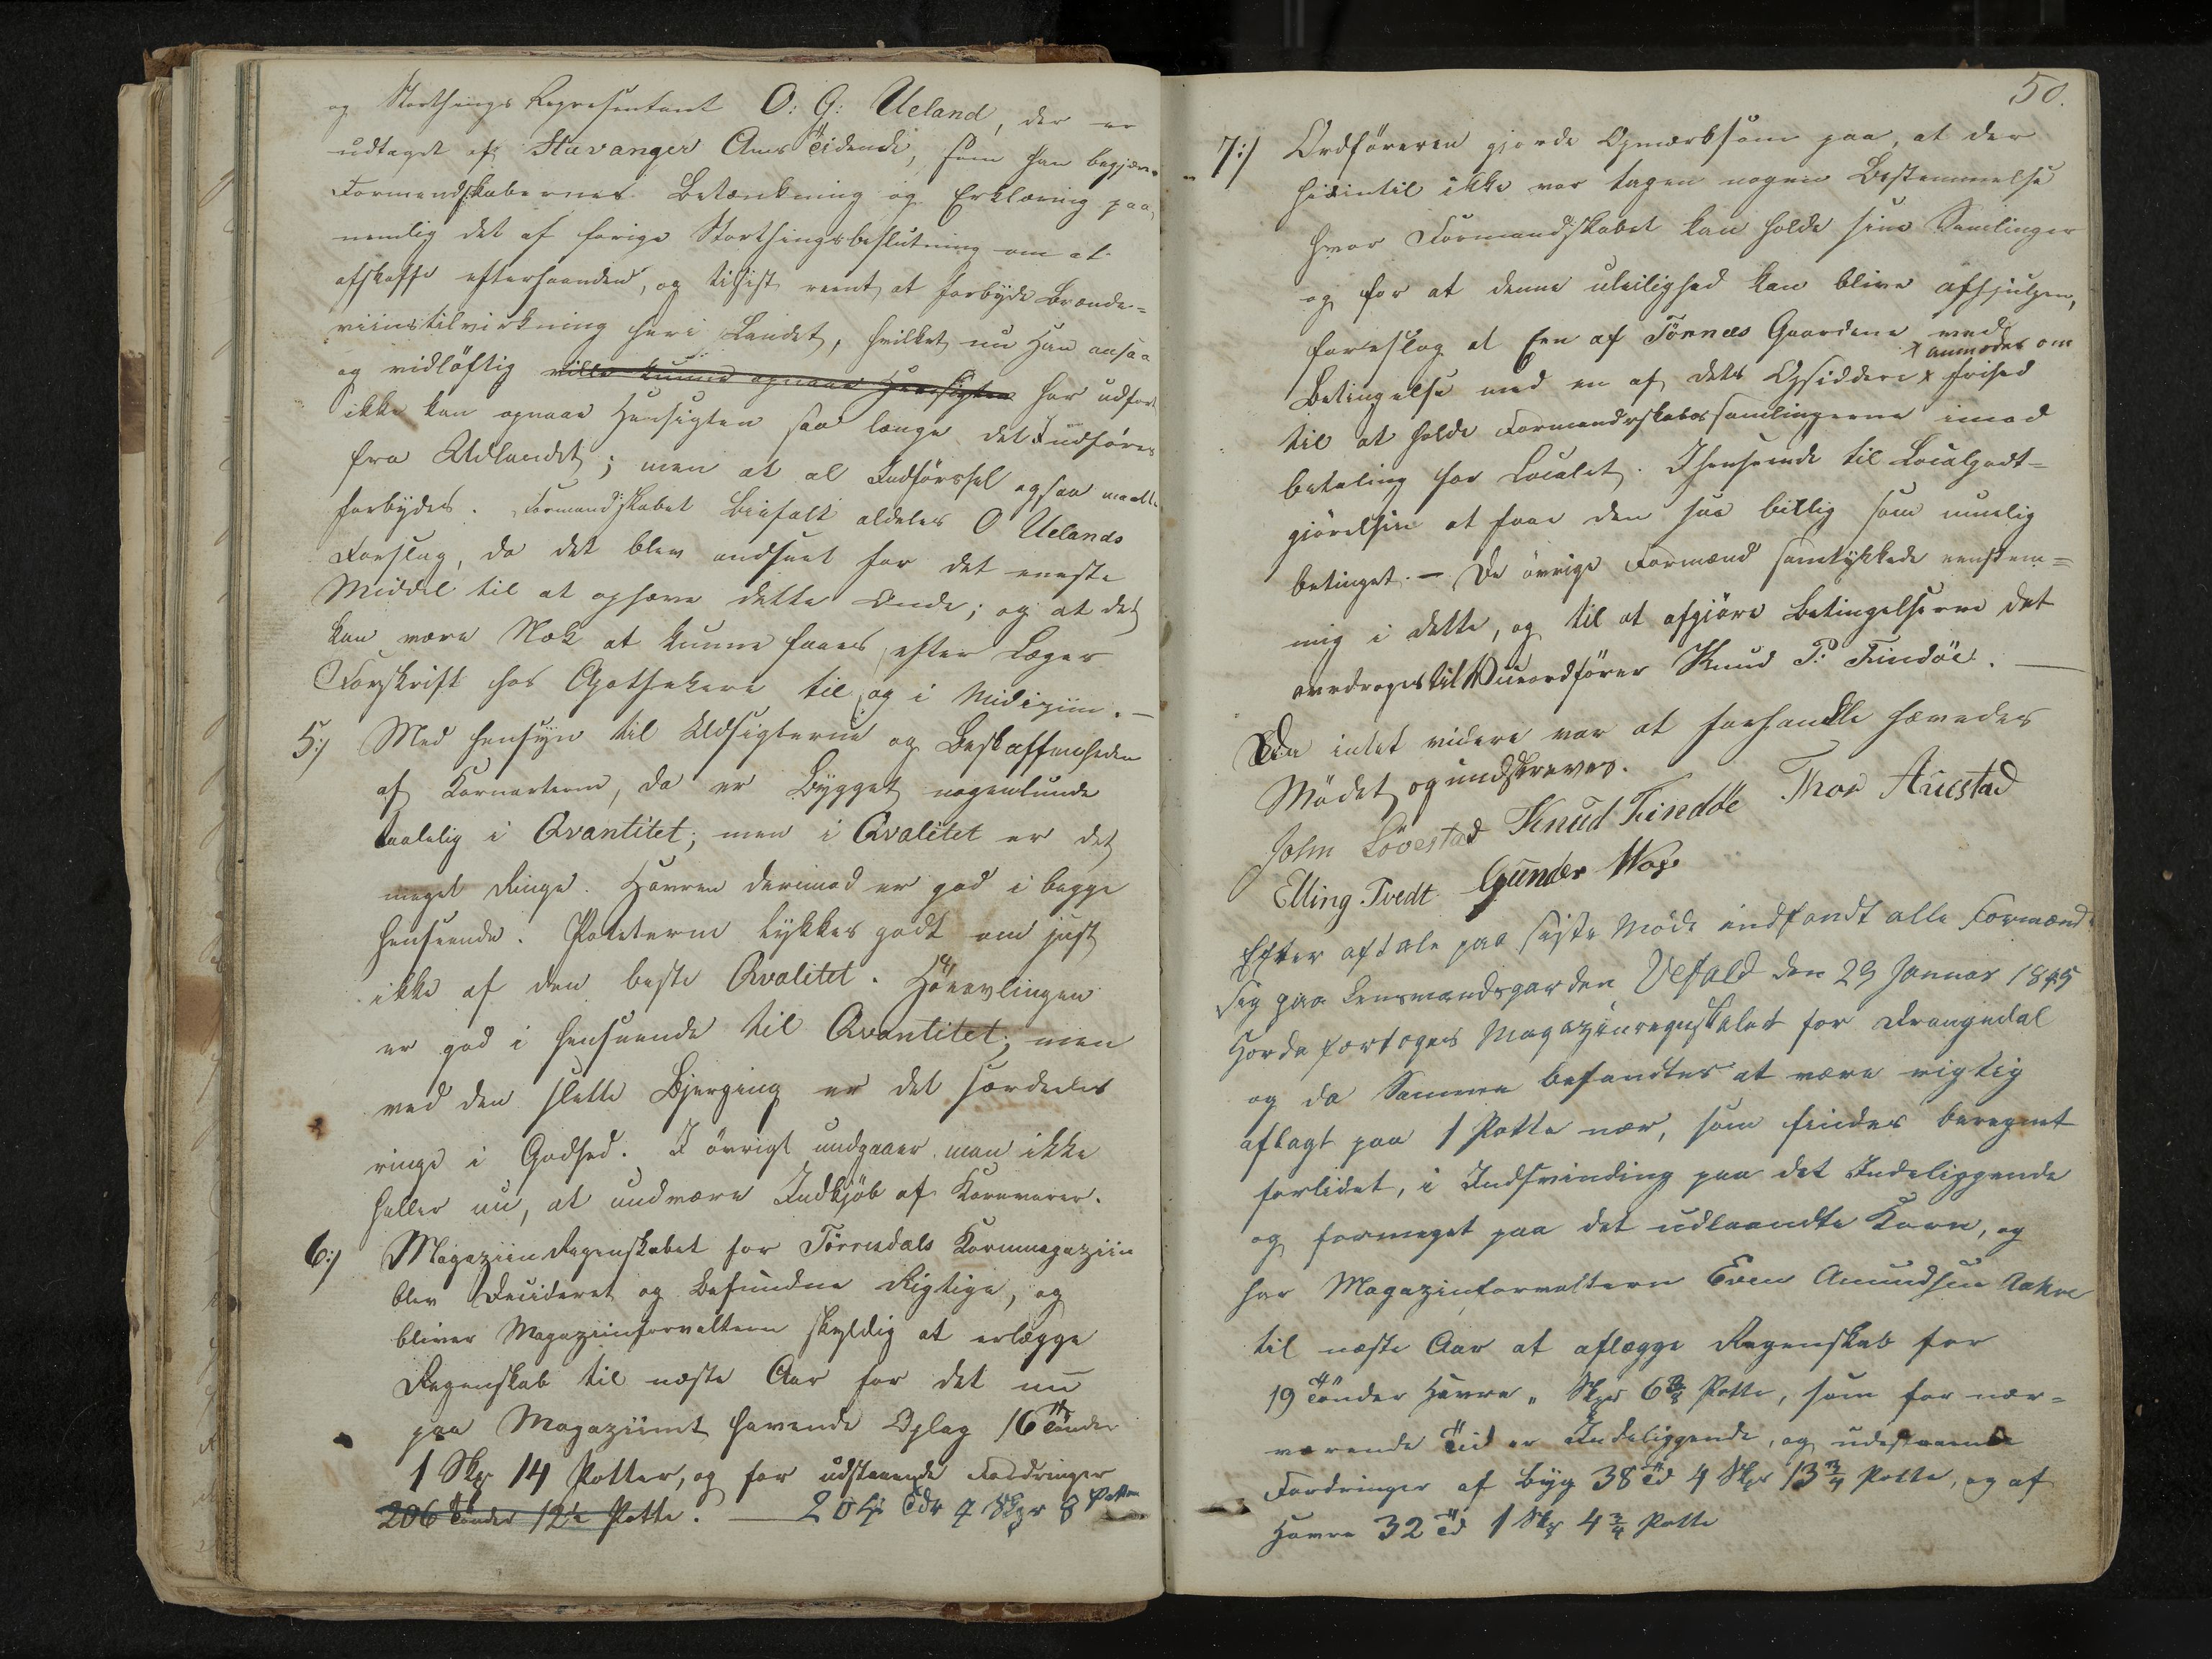 og Storthings Repræsentant O: G: Ueland, der er
udtaget af Stavanger Amts Tidende, som han begjær
Formandskabernes Betænkning og Erklæring paa,
nemlig det af forige Storthingsbeslutning om at
afskaffe efterhaanden, og tilsist reent at forbyde Brænde=
viinstilvirkning her i Landet, hvilket nu Han ansaa
og vidløftig ville kunne opnaae Hensigten har udført
ikke kan opnaae Hensigten saa længe det Indføres
fra Udlandet; men at al Indførsel ogsaa maatte
forbydes. Formandskabet Biefalt aldeles O Uelands
Forslag, da det blev andseet for det eneste
Middel til at ophæve dette Onde; og at det
kan være Nok at kunne faaes efter Læges
Forskrift hos Apothekere til og i Medizin. —
5:/ Med Hensyn til Udsigterne og Beskaffenheden
af Kornarterne, da er Bygget nogenlunde
taalelig i Qvantitet; men i Qvalitet er det
meget Ringe. Havren derimod er god i begge
Henseende. Poteterne lykkes godt om just
ikke af den beste Qvalitet. Høeavlingen
er god i Henseende til Qvantitet; men
ved den slette Bjerging er det særdeles
ringe i Godhed. I øvrigt undgaaer man ikke
heller nu, at undvære Indkjøb af Kornvarer.
6:/ Magaziin Regnskabet for Tørrisdals Kornmagaziin
blev Decideret og Befundne Rigtige, og
bliver Magaziinforvalteren skyldig at erlægge
Regenskab til næste Aar for det nu
paa Magaziinet havende Oplag 16 Tønder
1 Skp 14 Potter, og for udstaaende Fordringer
206 Tønder 12½ Potte. — 204 Tdr 4 Skpr 8 Potter
50.
7:/ Ordføreren gjorde Opmærksom paa, at der
hidintil ikke var tagen nogen Bestemmelse
hvor Formandskabet kan holde sine Samlinger
og for at denne uleilighed kan blive afhjulpen,
foreslog at Een af Tønnes Gaardene med
Betingelse med en af dets Opsiddere x frihed
x anmodes om
til at holde Formandskabssamlingerne imod
betaling for Localet. I henseende til Localgodt=
gjørelsen at faae den saa billig som muelig
betinget. — De øvrige Formænd samtykkede eenstem=
mig i dette, og til at afgjøre Betingelserne det
overdroges til Viceordfører Knud P. Findøe. —
Da intet videre var at forhandle hævedes
Mødet og undskreves.
John Lövestad Knud Findöe Thor Aüestad
Elling Tvedt Gunder Wog
Efter aftale paa siste Møde indfandt alle Formænd
sig paa Lensmandsgarden Vefald den 29 Januar 1845
Horda fortoges Magazinregnskabet for Drangedal
og da Samme befandtes at være rigtig
aflagt paa 1 Potte nær, som findes beregnet
forlidet, i Indsvinding paa det Indeliggende
og formeget paa det udlaandte Korn, og
har Magazinforvalteren Even Amundsen
til næste Aar at aflægge Regenskab for
19 Tønder Havre " Skpr 6 Potte, som for nær=
værende Tid er Indeliggende, og udestaaende
Fordringer af Byg 38 Td 4 Skpr 13 3/4 Potte, og af
Havre 32 Td 1 Skp 4 3/4 Potte